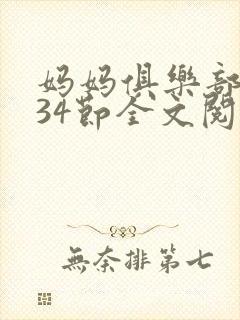 妈妈俱樂部
34節全文閱
無奈排第七